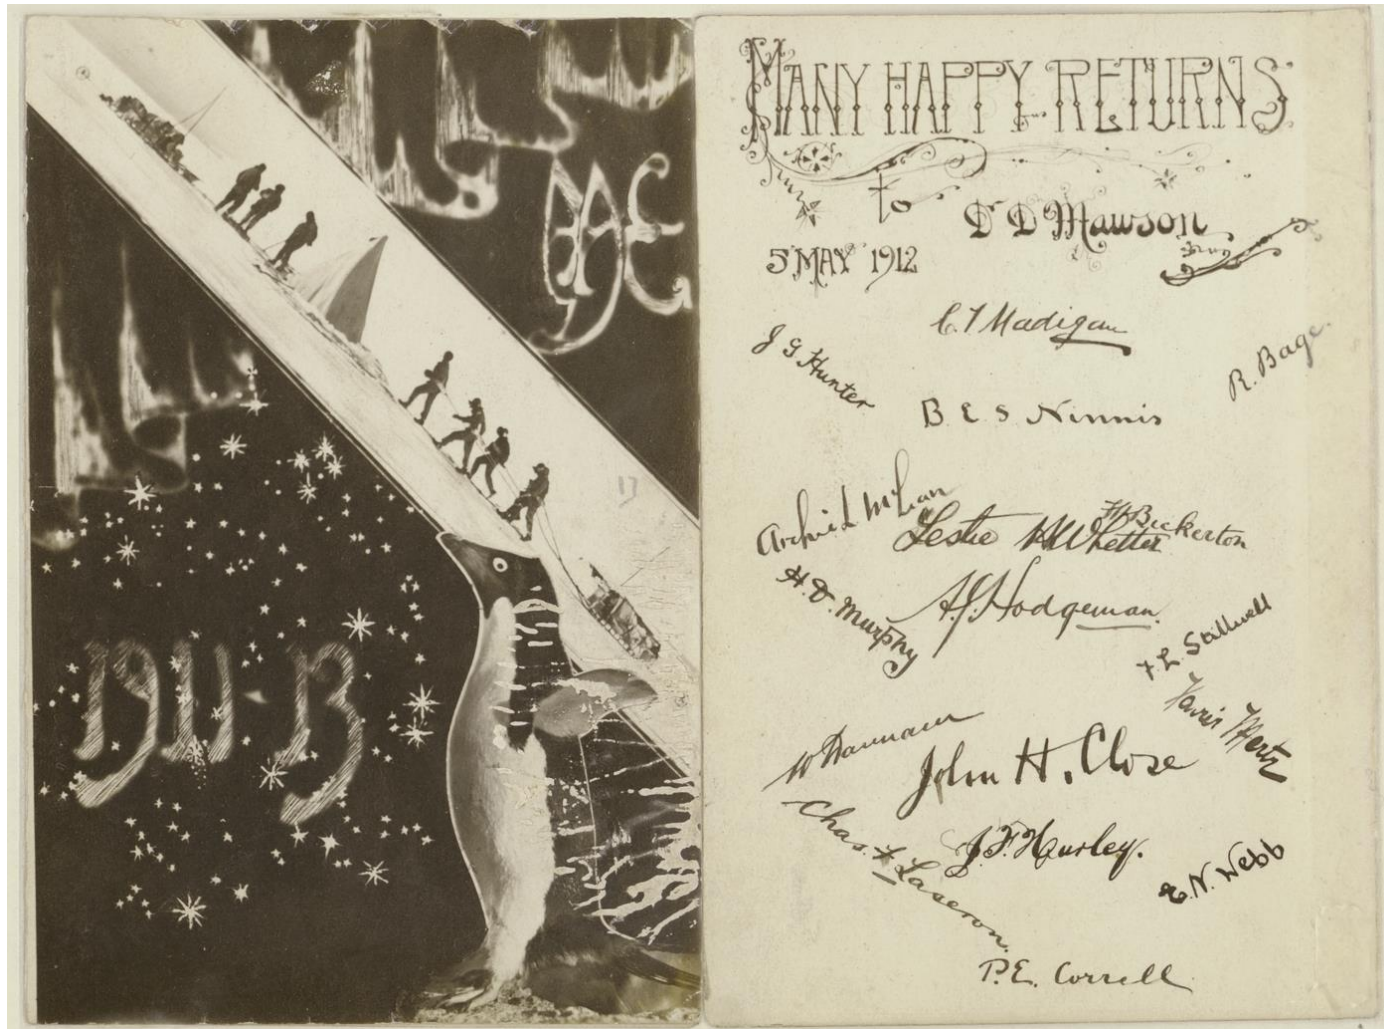 AAE
1911-13
13
MANY HAPPY RETURNS
to
Dr D Mawson
5 MAY 1912
C T Madigan
J G Hunter
R. Bage
B E S Ninnis
Archie L McLean
F H Bickerton
Leslie H Whetter
H. D. Murphy
A. J. Hodgeman
F. L. Stillwell
Xavier Mertz
W Hannam
John H. Close
Chas. F Laseron.
J. F. Hurley.
E. N. Webb
P. E. Correll